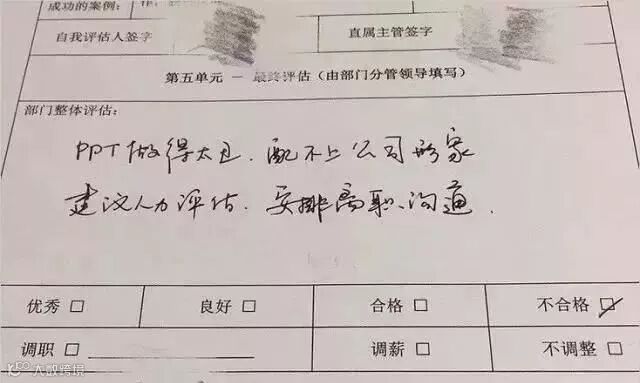 成功的案例:
自我评估人签字 直属主管签字
第五单元 — 最终评估(由部门分管领导填写)
部门整体评估:
PPT做得太丑,配不上公司形象
建议人力评估,安排离职沟通.
优秀 □ 良好 □ 合格 □ 不合格 ☑
调职 □ 调薪 □ 不调整 □
大数跨境